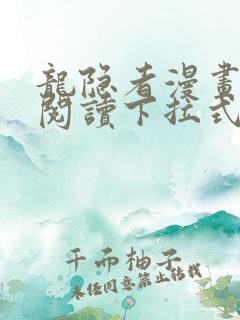 龍隐者漫畫
閱讀下拉式
千而柚子
未经同意禁止转载